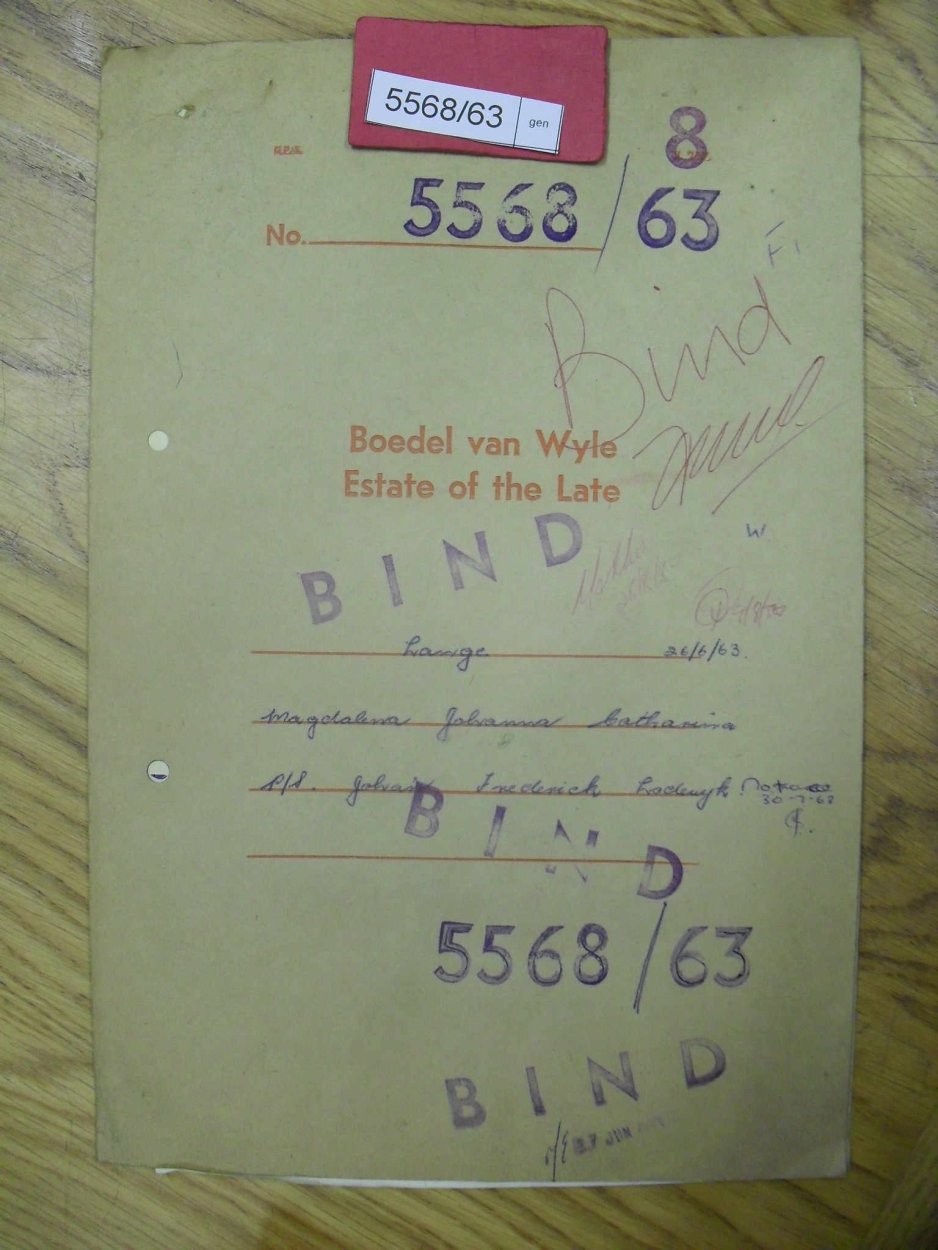 5568/63 gen
8
No. 5568/63
Bind
Boedel van Wyle
Estate of the Late
BIND
W
Lange 26/6/63.
Magdalena Johanna Catharina
p/s. Johan Frederick Lodewyk
30-7-68
BIND
5568/63
BIND
27 JUN